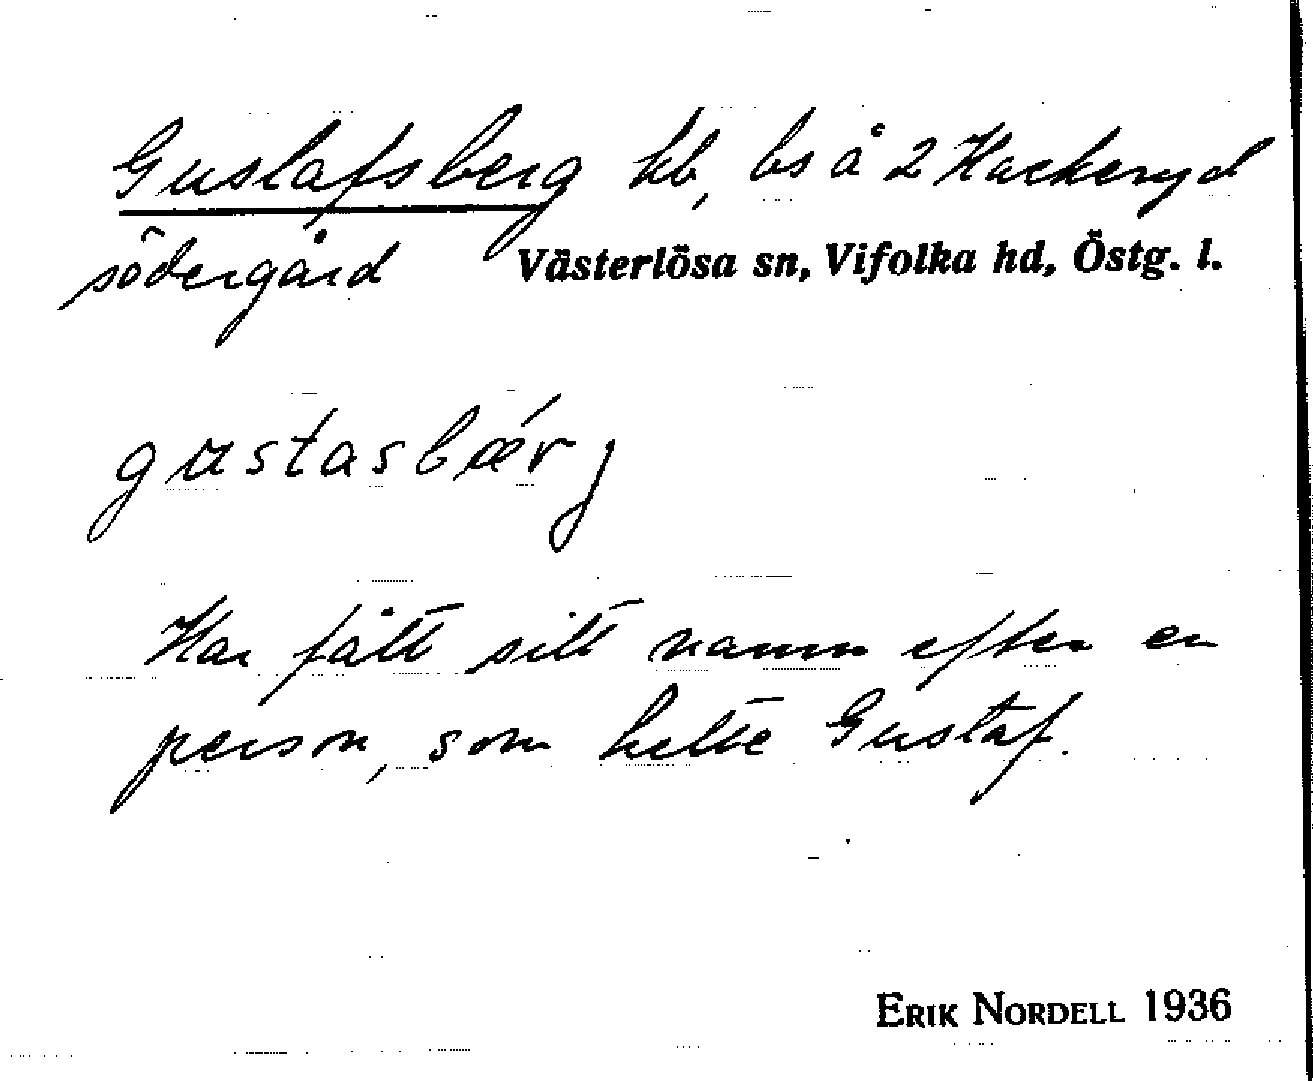 Gustafsberg hb, bs å 2 Hackeryd
södergård Västerlösa sn, Vifolka hd, Östg. l.
gustasbǽrj
Har fått sitt namn efter en
person, som hette Gustaf.
ERIK NORDELL 1936